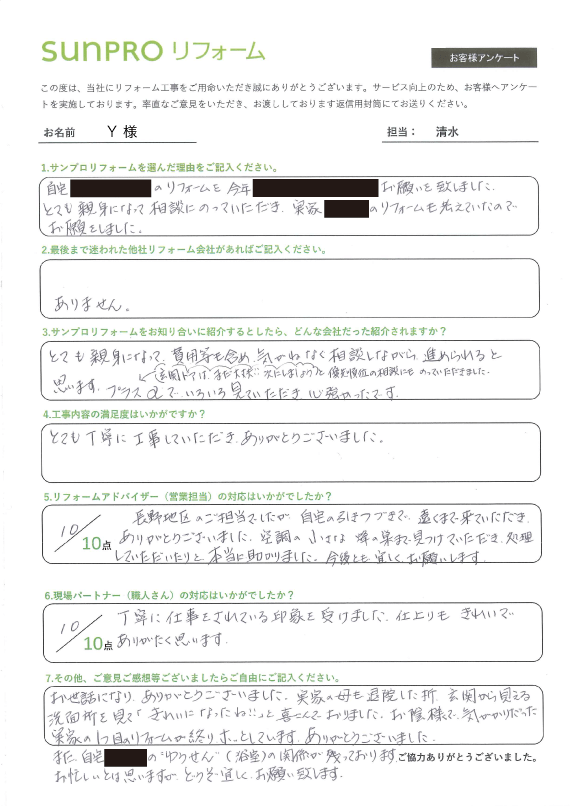 sunPRO リフォーム
お客様アンケート
この度は、当社にリフォーム工事をご用命いただき誠にありがとうございます。サービス向上のため、お客様へアンケー
トを実施しております。率直なご意見をいただき、お渡ししております返信用封筒にてお送りください。
お名前 Y 様 担当： 清水
1.サンプロリフォームを選んだ理由をご記入ください。
自宅 のリフォームを 今年 お願いを致しました。
とても親身になって相談にのっていただき、実家 のリフォームも考えていたので
お願をしました。
2.最後まで迷われた他社リフォーム会社があればご記入ください。
ありません。
3.サンプロリフォームをお知り合いに紹介するとしたら、どんな会社だった紹介されますか？
とても親身になって、費用等も含め、気がねなく相談しながら進められると
玄関ドアは、まだ大丈夫!!次にしましょうと優先順位の相談にものっていただきました。
思います。プラスαで、いろいろ見ていただき心強かったです。
4.工事内容の満足度はいかがですか？
とても丁寧に工事していただき、ありがとうございました。
5.リフォームアドバイザー（営業担当）の対応はいかがでしたか？
10/10点
長野地区のご担当でしたが、自宅のるすつづきで、遠くまで来ていただき、
ありがとうございました。空調の小さな蜂の巣まで見つけていただき、処理
していただいたりと、本当に助かりました。今後とも宜しくお願いします。
6.現場パートナー（職人さん）の対応はいかがでしたか？
10/10点
丁寧に仕事をされている印象を受けました。仕上りもきれいで
ありがたく思います。
7.その他、ご意見ご感想等ございましたらご自由にご記入ください。
お世話になり、ありがとうございました。実家の母も退院した折、玄関から見える
洗面所を見て「きれいになったね!!」と喜こんでおりました。お陰様で、気がかりだった
実家の1つ目のリフォームが終りホッとしています。ありがとうございました。
また、自宅 の"ゆうせん"（浴室）の関係が残っております。
ご協力ありがとうございました。
お忙しいとは思いますが、どうぞ宜しくお願い致します。